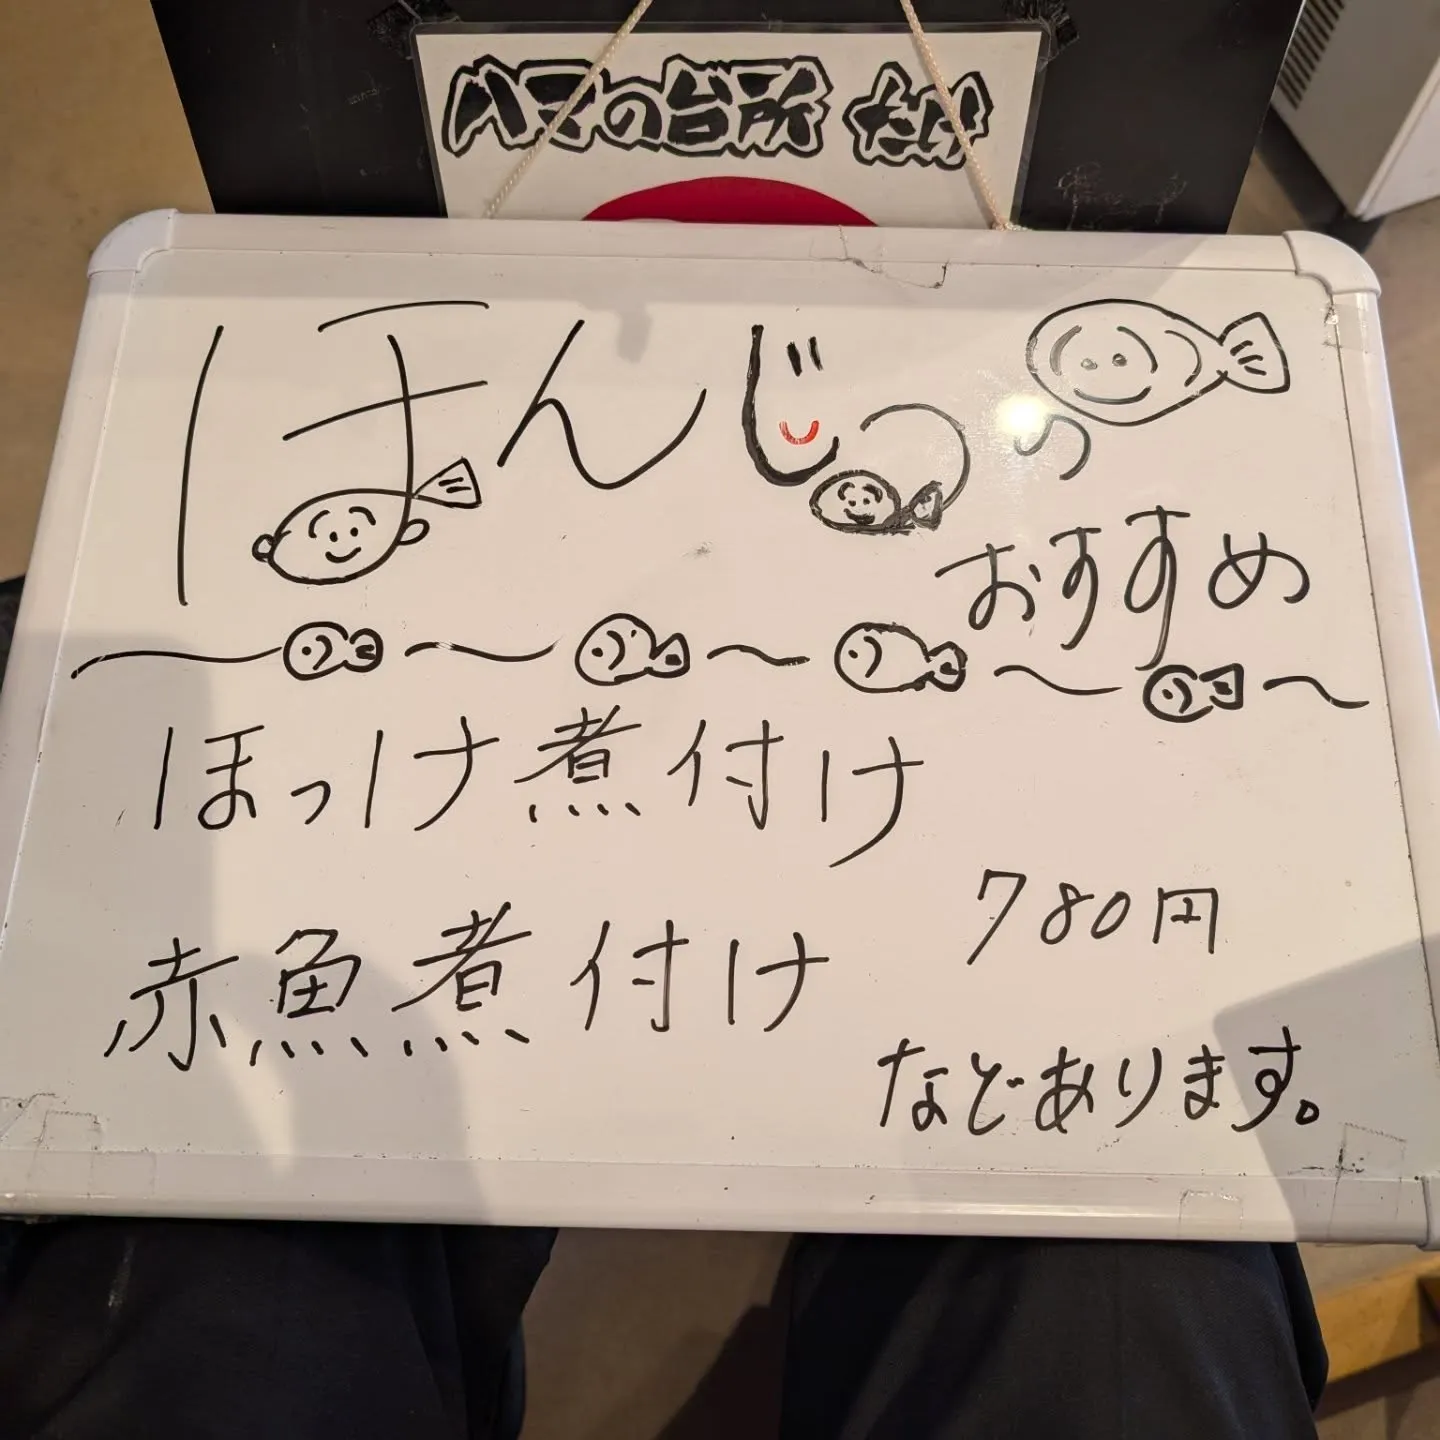 ハマの台所 たけ
ほんじつの
おすすめ
ほっけ煮付け
780円
赤魚煮付け
などあります。